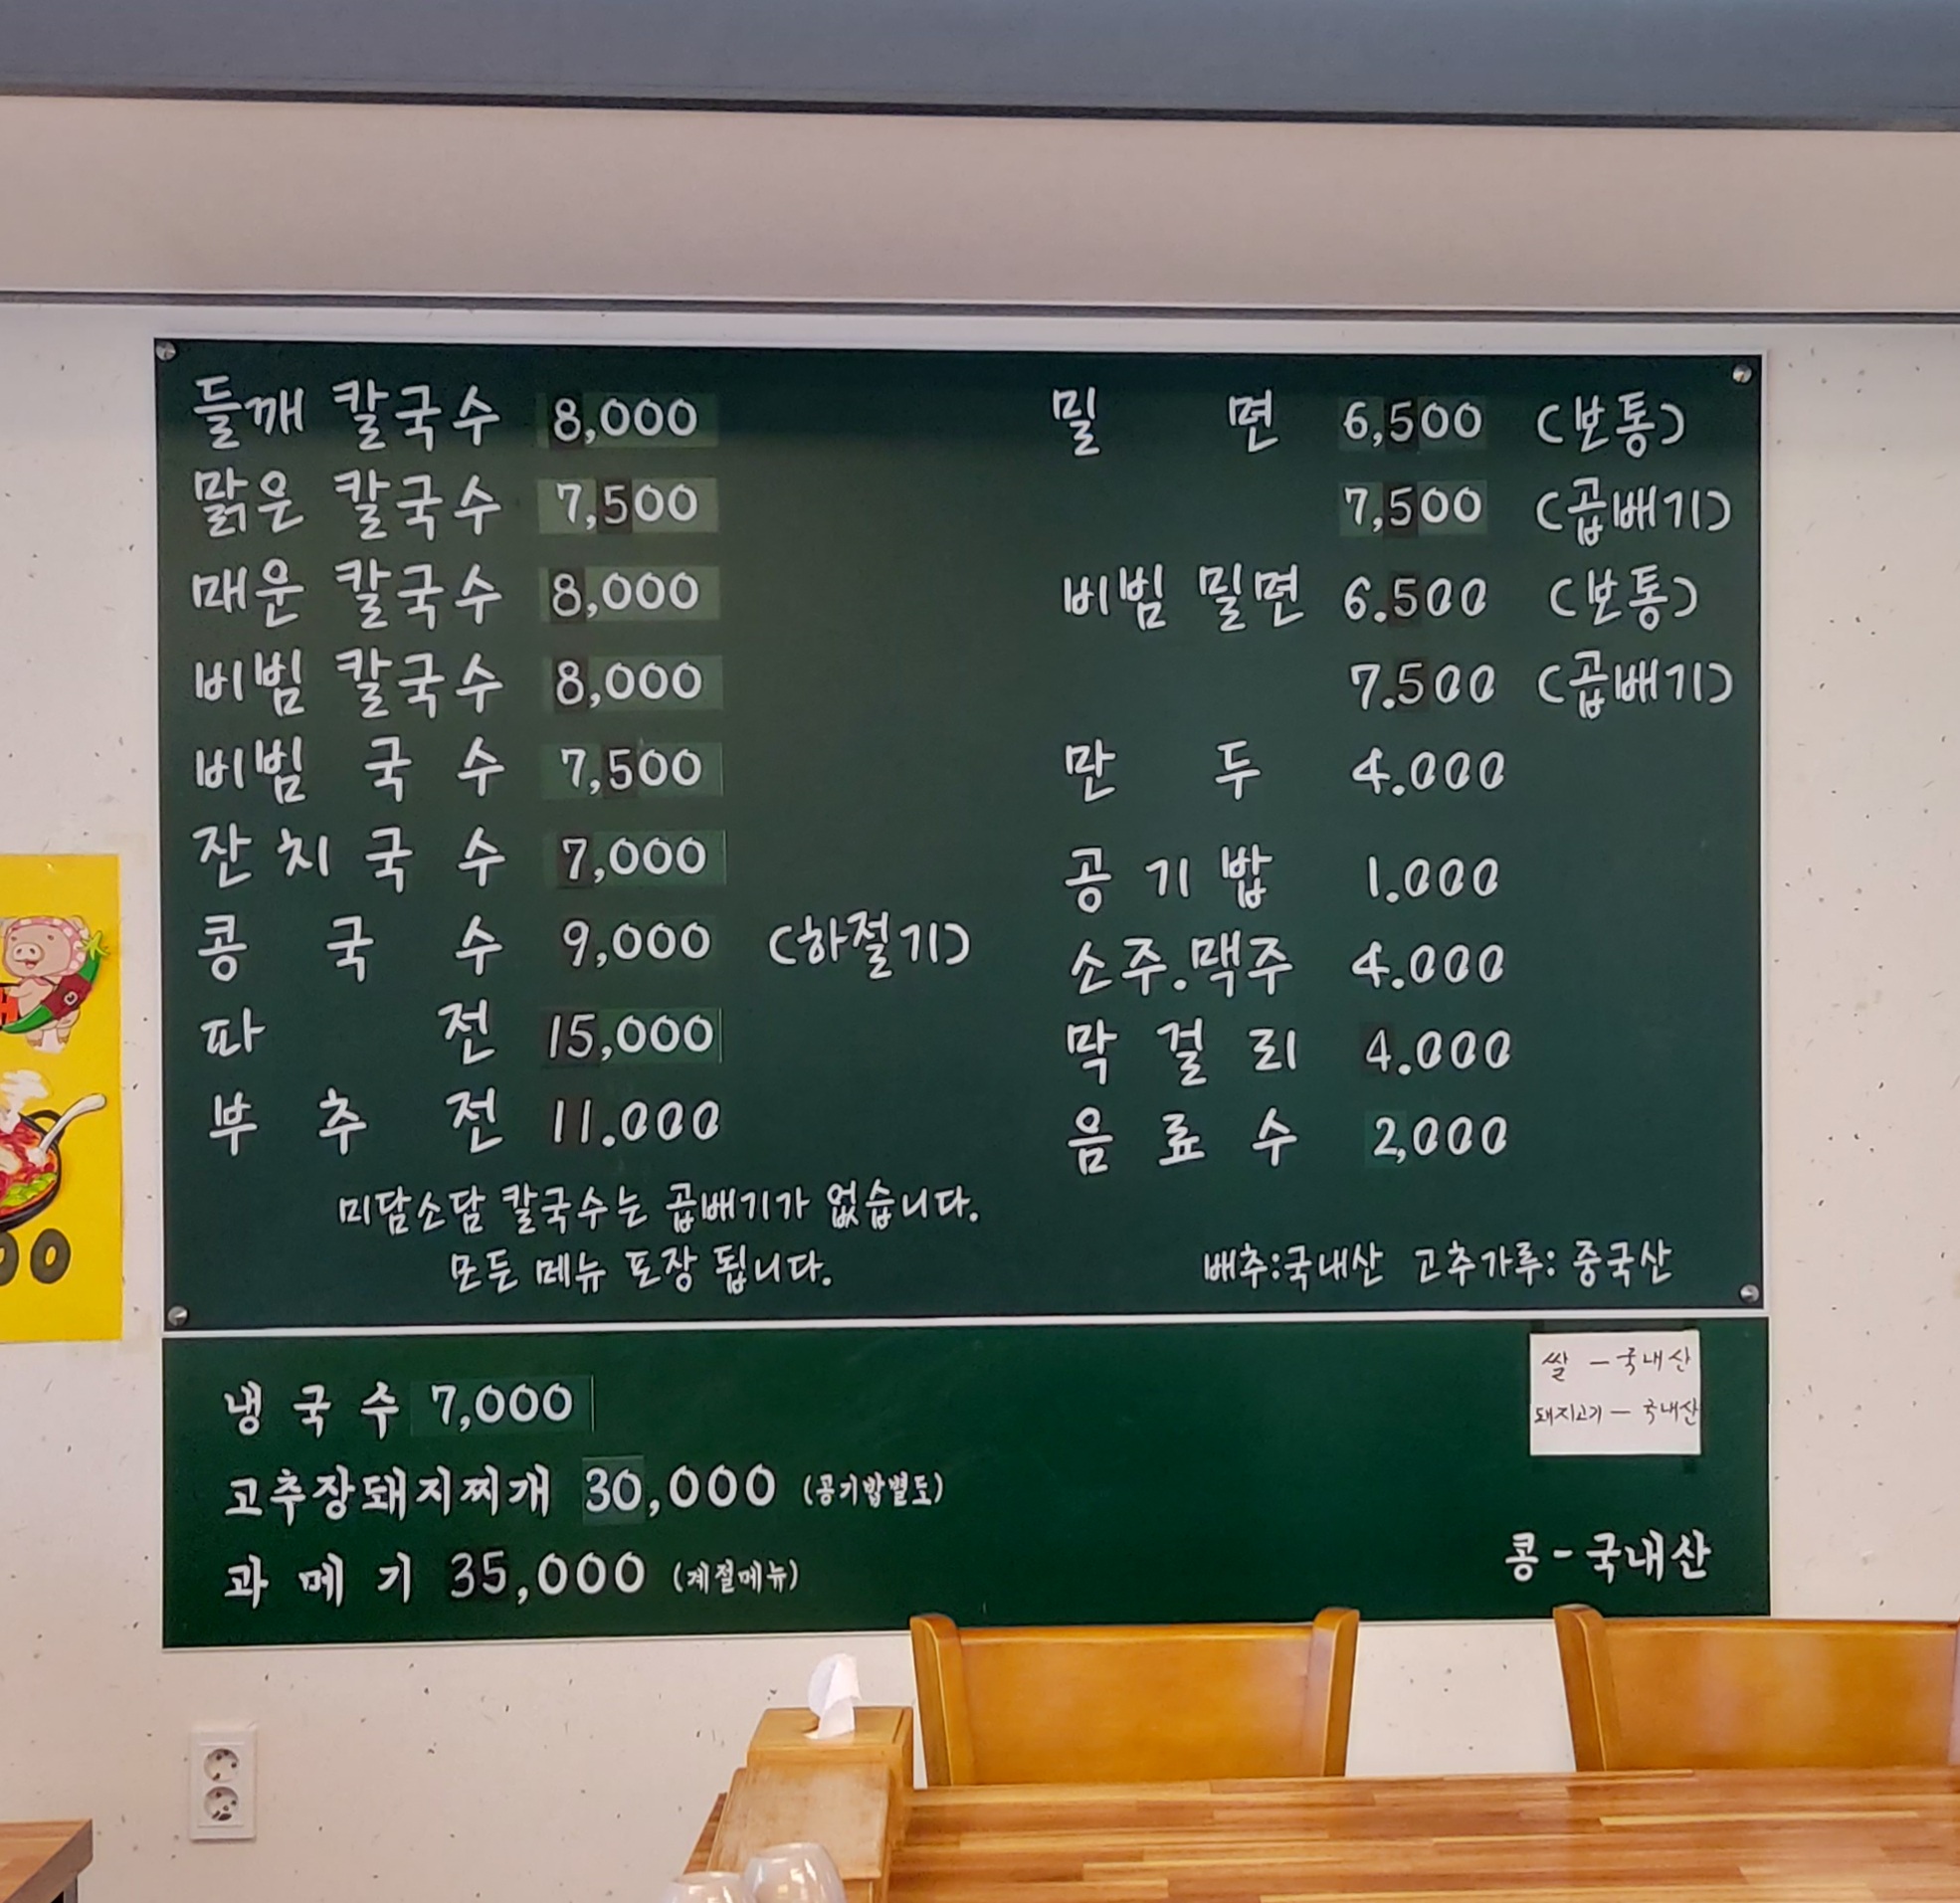 들깨 칼국수 8,000
맑은 칼국수 7,500
매운 칼국수 8,000
비빔 칼국수 8,000
비빔 국수 7,500
잔치국수 7,000
콩국수 9,000 (하절기)
파전 15,000
부추전 11.000
미담소담 칼국수는 곱배기가 없습니다.
모든 메뉴 포장 됩니다.
밀면 6,500 (보통)
7,500 (곱배기)
비빔 밀면 6.500 (보통)
7.500 (곱배기)
만두 4.000
공기밥 1.000
소주.맥주 4.000
막걸리 4.000
음료수 2,000
배추:국내산 고추가루: 중국산
냉국수 7,000
고추장돼지찌개 30,000 (공기밥별도)
과메기 35,000 (계절메뉴)
쌀 - 국내산
돼지고기 - 국내산
콩 - 국내산